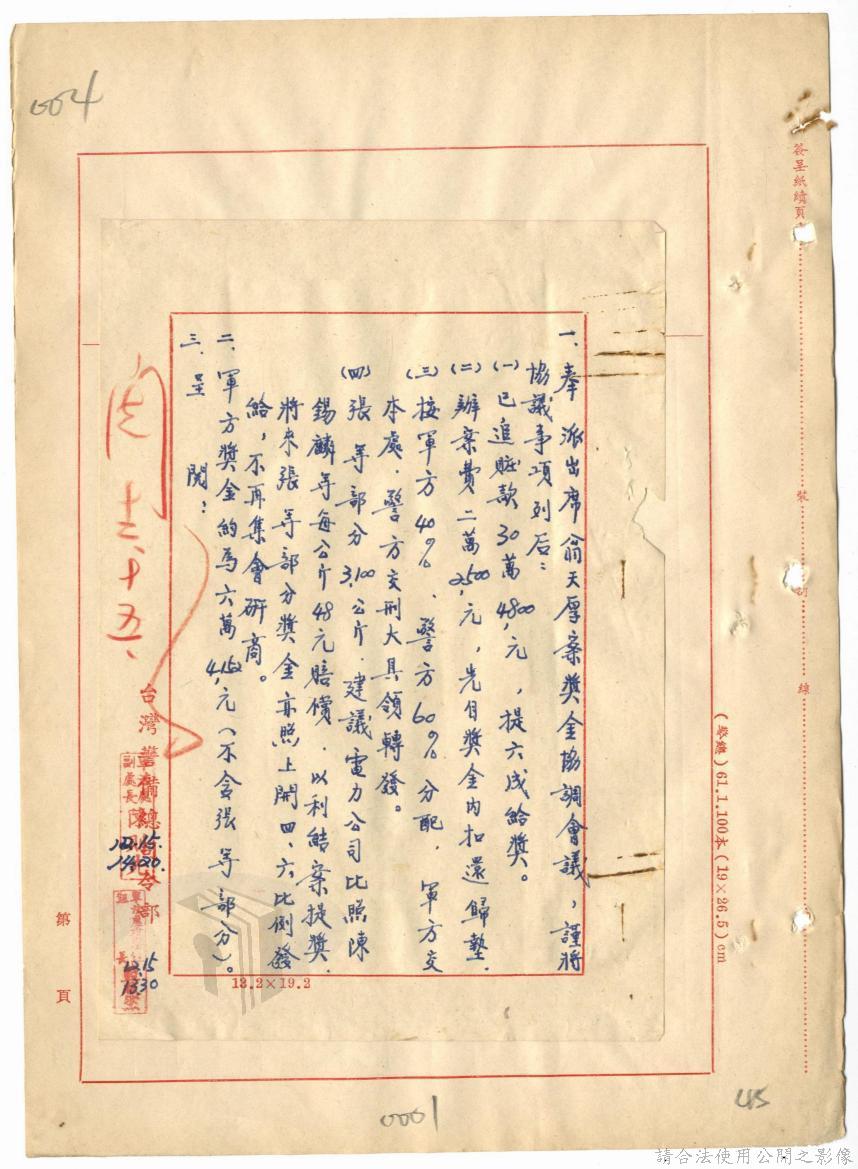 004
簽呈紙續頁
裝
訂
線
(聯總)61.1.100本(19×26.5)cm
一、奉 派出席翁天厚案獎金協調會議,謹將
協議事項列后:
(一)已追賍款30萬4,800元,提六成給獎。
(二)辦案費二萬2,500元,先自獎金內扣還歸墊.
(三)按軍方40%、警方60%分配,軍方交
本處.警方交刑大具領轉發。
(四)張 等部分3,100公斤.建議電力公司比照陳
錫麟等每公斤48元賠償.以利結案提獎.
將來張 等部分獎金亦照上開四、六比例發
給,不再集會研商。
二、軍方獎金約為六萬4,152元(不含張 等部分)。
三、呈
閱:
十二、十五、
台灣警備總司令部
副處長
12.15.
1400.
組長
12.15
1330
13.2×19.2
第
頁
0001
請合法使用公開之影像